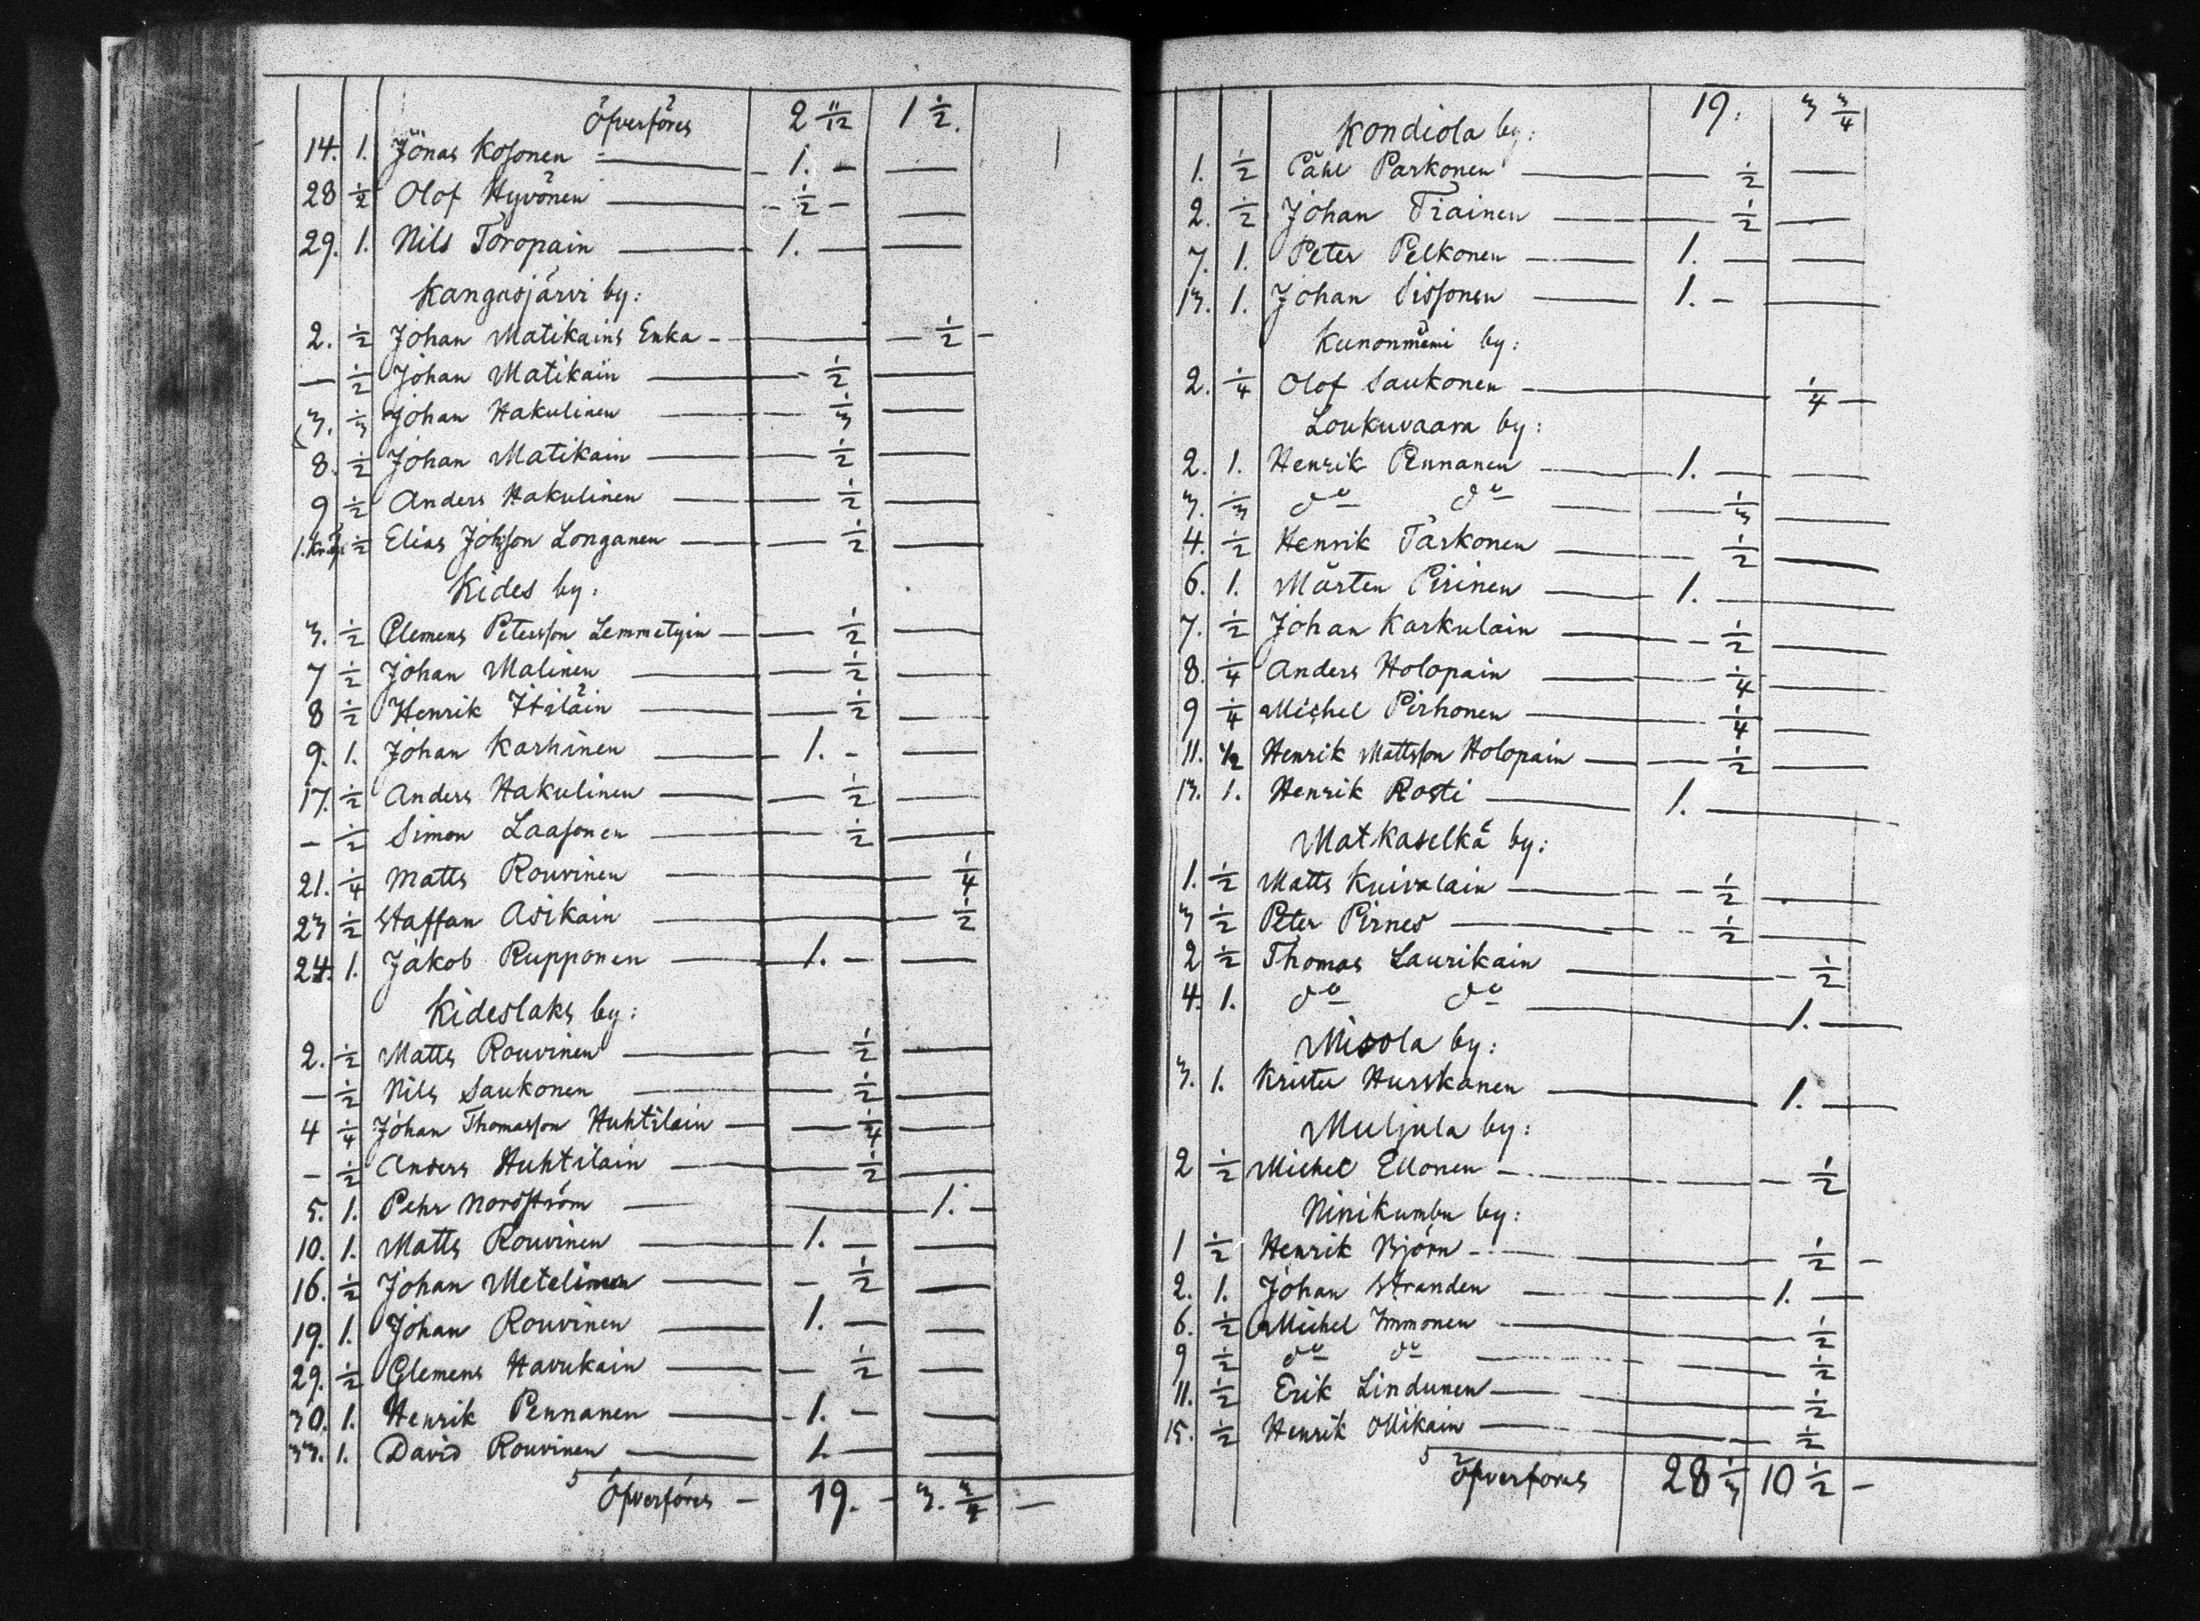 Öfverföres 2 11/12 1 1/2.
14. 1. Jönas Kosonen 1.
28 1/2 Olof Hyvönen 1/2
29. 1. Nils Toropain 1.
Kangasjärvi by:
2. 1/2 Johan Matikains Enka 1/2
— 1/2 Johan Matikain 1/2
3. 1/3 Johan Hakulinen 1/3
8. 1/2 Johan Matikain 1/2
9 1/2 Anders Hakulinen 1/2
1/2 Elias Johsson Longanen 1/2
Kides by:
3. 1/2 Clemens Petersson Lemmetyin 1/2
7 1/2 Johan Malinen 1/2
8 1/2 Henrik Itiläin 1/2
9. 1. Johan Karhinen 1.
17. 1/2 Anders Hakulinen 1/2
— 1/2 Simon Laasonen 1/2
21. 1/4 Matts Rouvinen 1/4
23 1/2 Staffan Asikain 1/2
24. 1. Jakob Rupponen 1.
Kideslaks by:
2. 1/2 Matts Rouvinen 1/2
— 1/2 Nils Saukonen 1/2
4 1/4 Johan Thomasson Huhtilain 1/4
— 1/2 Anders Huhtilain 1/2
5. 1. Pehr Nordström 1.
10. 1. Matts Rouvinen 1.
16. 1/2 Johan Metelinen 1/2
19. 1. Johan Rouvinen 1.
29. 1/2 Clemens Havukain 1/2
30. 1. Henrik Pennanen 1.
33. 1. David Rouvinen 1.
Öfverföres 19. 3. 3/4
19. 3 3/4
Kondiola by:
1. 1/2 Påhl Parkonen 1/2
2. 1/2 Johan Tiainen 1/2
7. 1. Peter Pelkonen 1.
13. 1. Johan Sissonen 1.
Kunonniemi by:
2. 1/4 Olof Saukonen 1/4
Loukuvaara by:
2. 1. Henrik Pennanen 1.
3. 1/3 do do 1/3
4. 1/2 Henrik Tarkonen 1/2
6. 1. Mårten Pirinen 1.
7. 1/2 Johan Karkulain 1/2
8. 1/4 Anders Holopain 1/4
9 1/4 Michel Pirhonen 1/4
11. 1/2 Henrik Mattsson Holopain 1/2
13. 1. Henrik Rosti 1.
Matkaselkä by:
1. 1/2 Matts Kuivalain 1/2
3 1/2 Peter Pirnes 1/2
2 1/2 Thomas Laurikain 1/2
4. 1. do do 1.
Misola by:
3. 1. Krister Hurskanen 1.
Muljula by:
2 1/2 Michel Ellonen 1/2
Ninikumbu by:
1 1/2 Henrik Björn 1/2
2. 1. Johan Stranden 1.
6. 1/2 Michel Immonen 1/2
9 1/2 do do 1/2
11. 1/2 Erik Lindunen 1/2
15. 1/2 Henrik Ollikain 1/2
Öfverföres 28 1/3 10 1/2